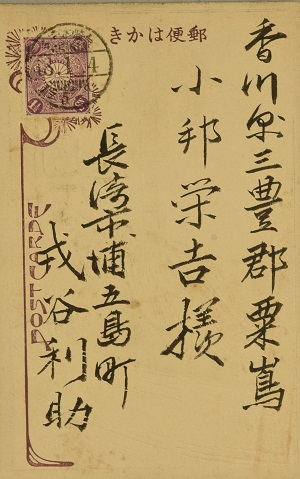 きかは便郵
香川県三豊郡粟嶌
小邦栄吉様
長崎市浦五島町
戎谷利助
POST CARDE